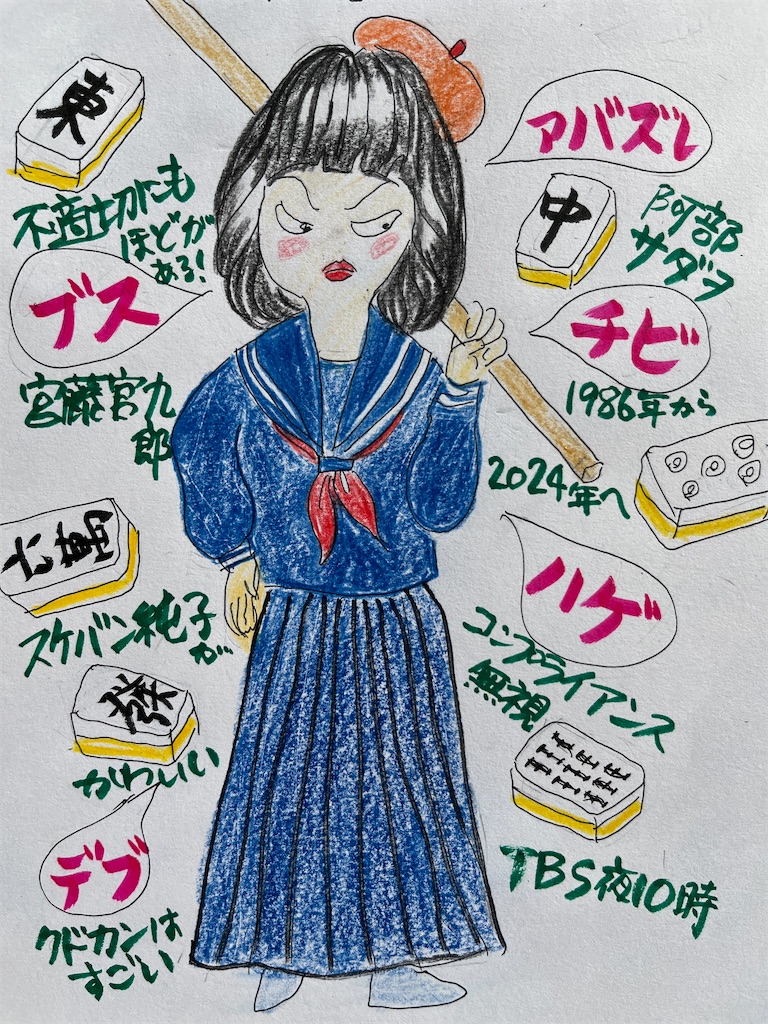 東
不適切にも
ほどが
ある!
ブス
宮藤官九
郎
六萬
スケバン純子
が
發
かわいい
デブ
クドカンは
すごい
アバズレ
中
阿部
サダヲ
チビ
1986年から
2024年へ
ハゲ
コンプライアンス
無視
TBS夜10時